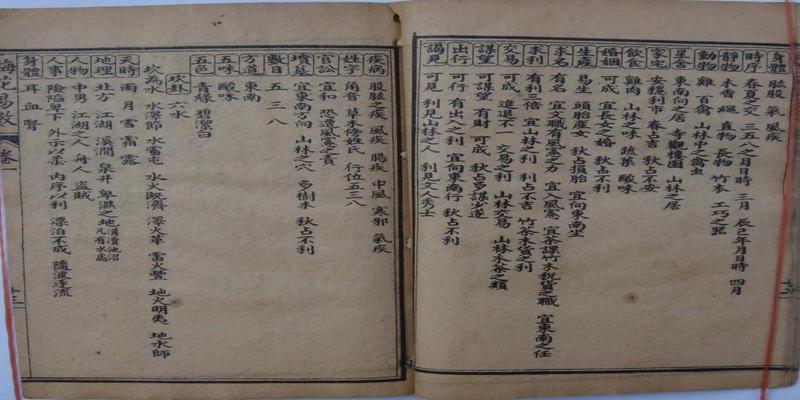 身體 股肱 氣 風疾
時序 春夏之交 三五八之月日時 三月 辰巳年月日時 四月
靜物 木香 繩 直物 長物 竹木 工巧之器
動物 雞 百禽 山林中之禽虫
星舍 東南向之居 寺觀樓園 山林之居
家宅 安穩利市 春占吉 秋占不安
飲食 雞肉 山林之味 蔬菓 酸味
婚姻 可成 宜長女之婚 秋占不利
生產 易生 頭胎產女 秋占損胎 宜向東南坐
求名 有名 宜文職有風憲之力 宜入風憲 宜茶課竹木稅貨之職 宜東南之任
求利 有利三倍 宜山林之利 秋占不吉 竹茶木貨之利
交易 可成 進退不一 交易之利 山林交易 山林木茶之類
謀望 可謀望 有財 可成 秋占多謀少遂
出行 可行 有出入之利 宜向東南行 秋占不利
謁見 可見 利見山林之人 利見文人秀士
疾病 股肱之疾 風疾 腸疾 中風 寒邪 氣疾
姓字 角音 草木傍姓氏 行位五三八
官訟 宜和 恐遭風憲之責
墳墓 宜東南方向 山林之穴 多樹木 秋占不利
數目 五 三 八
方道 東南
五味 酸味
五色 青綠 碧 潔白
坎卦 六水
坎為水 水澤節 水雷屯 水火既濟 澤火革 雷火豐 地火明夷 地水師
天時 雨 月 雪 霜 露
地理 北方 江湖 溪澗 泉井 卑濕之地 溝瀆池沼凡有水處
人物 中男 江湖之人 舟人 盜賊
人事 險陷卑下 外示以柔 內序以利 漂泊不成 隨波逐流
身體 耳 血 腎
梅花易數 卷一